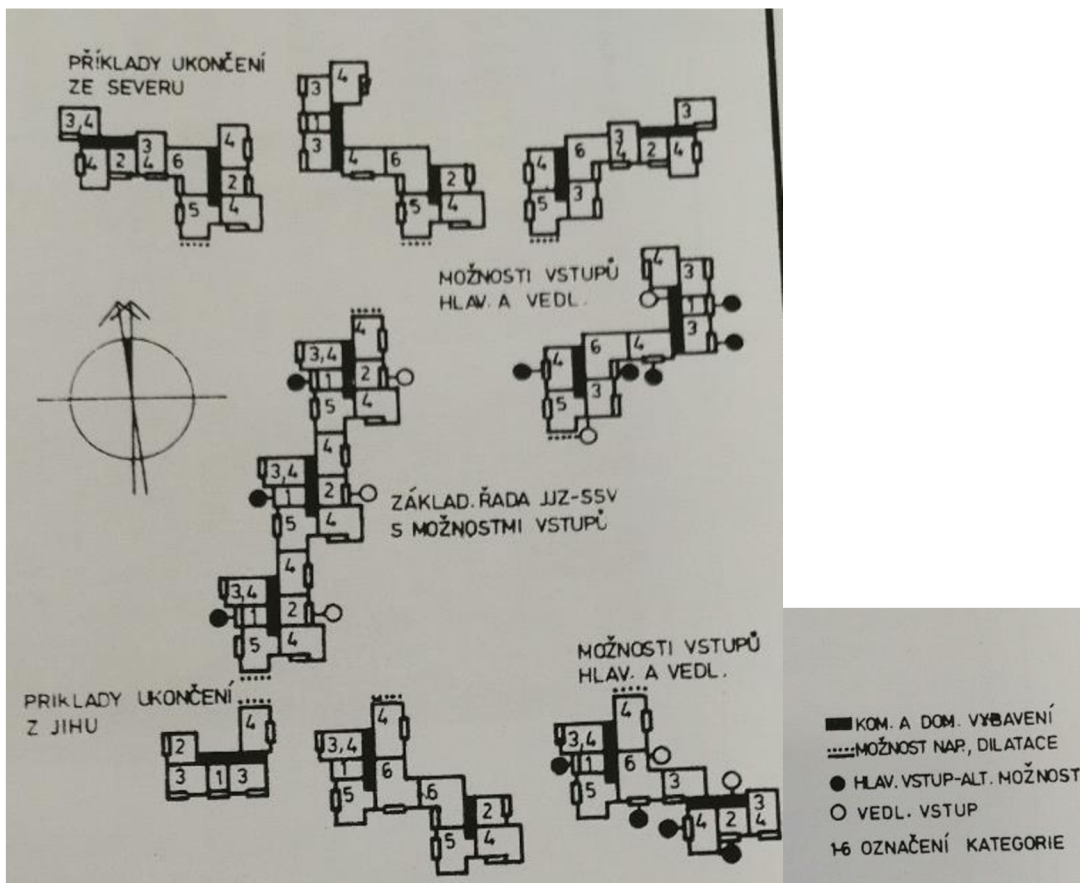 PŘÍKLADY UKONČENÍ
ZE SEVERU
3,4
4
2
3
4
6
4
2
5
4
3
4
1
3
4
6
2
5
4
3
3
4
6
4
2
4
5
3
MOŽNOSTI VSTUPŮ
HLAV. A VEDL.
4
3
1
3
4
6
4
5
3
4
3,4
1
2
5
4
4
3,4
1
2
5
4
ZÁKLAD. ŘADA JJZ-SSV
S MOŽNOSTMI VSTUPŮ
4
3,4
1
2
5
4
PŘIKLADY UKONČENÍ
Z JIHU
4
2
3
1
3
4
3,4
1
6
5
6
2
5
4
MOŽNOSTI VSTUPŮ
HLAV. A VEDL.
4
3,4
1
6
5
3
4
2
3
4
KOM. A DOM. VYBAVENÍ
MOŽNOST NAP., DILATACE
HLAV. VSTUP-ALT. MOŽNOST
VEDL. VSTUP
1-6 OZNAČENÍ KATEGORIE